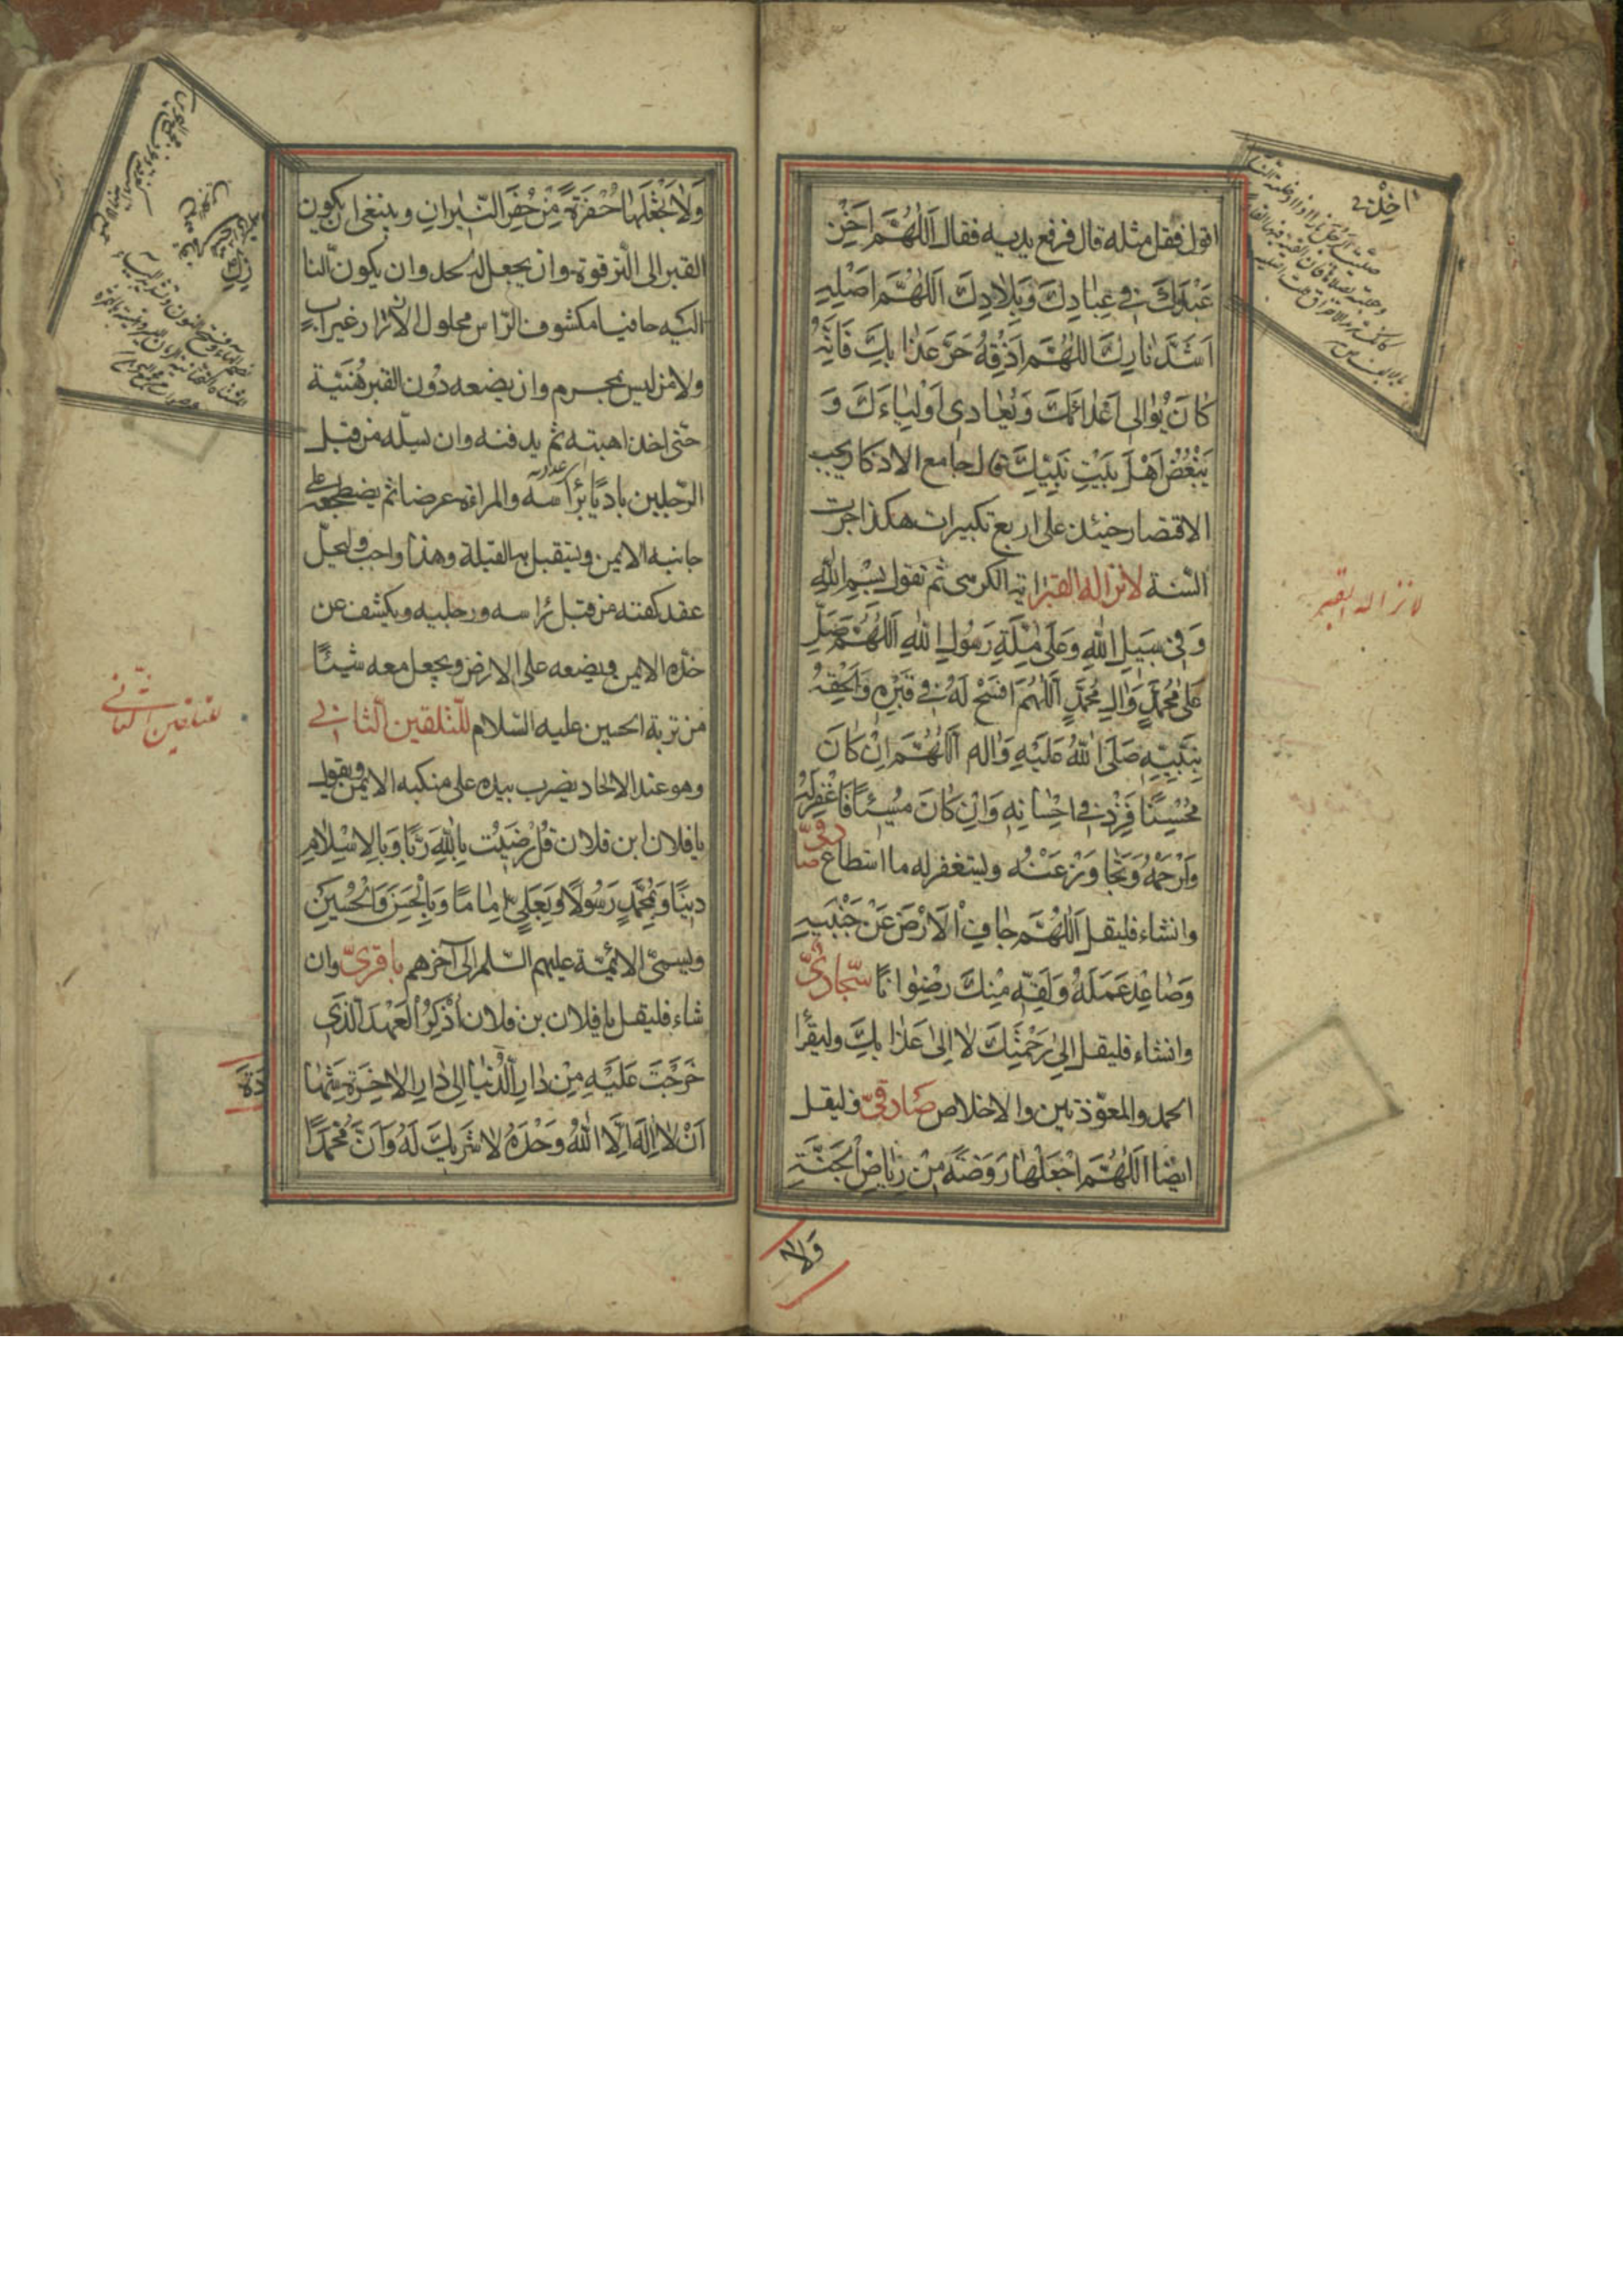 اقول فقل مثله قال فرفع يديه فقال اَللّٰهُمَّ اَخْزِ
عَبْدَكَ فِي عِبَادِكَ وَبِلَادِكَ اَللّٰهُمَّ اَصْلِهِ
اَشَدَّ نَارِكَ اَللّٰهُمَّ اَذِقْهُ حَرَّ عَذَابِكَ فَاِنَّهُ
كَانَ يُوَالِي اَعْدَائَكَ وَيُعَادِي اَوْلِيَاءَكَ وَ
يُبْغِضُ اَهْلَ بَيْتِ نَبِيِّكَ قال جامع الاذكار يجب
الاقتصار حينئذ على اربع تكبيرات هكذا جرت
السّنة لانزاله القبر اية الكرسى ثم تقول بِسْمِ اللّٰهِ
وَفِي سَبِيلِ اللّٰهِ وَعَلَى مِلَّةِ رَسُولِ اللّٰهِ اَللّٰهُمَّ صَلِّ
عَلَى مُحَمَّدٍ وَاٰلِ مُحَمَّدٍ اَللّٰهُمَّ افْسَحْ لَهُ فِي قَبْرِهِ وَاَلْحِقْهُ
بِنَبِيِّهِ صَلَّى اللّٰهُ عَلَيْهِ وَاٰله اَللّٰهُمَّ اِنْ كَانَ
مُحْسِنًا فَزِدْ فِي اِحْسَانِهِ وَاِنْ كَانَ مُسِيْئًا فَاغْفِرْ لَهُ
وَارْحَمْهُ وَتَجَاوَزْ عَنْهُ ويستغفر له ما استطاع صادقىّ
وان شاء فليقل اَللّٰهُمَّ جَافِ الْاَرْضَ عَنْ جَنْبَيْهِ
وَصَاعِدْ عَمَلَهُ وَلَقِّهِ مِنْكَ رِضْوَانًا سجّادىّ
وان شاء فليقل اِلىٰ رَحْمَتِكَ لَا اِلىٰ عَذَابِكَ وليقرأ
الحمد والمعوّذتين والاخلاص صادقىّ فليقل
ايضًا اَللّٰهُمَّ اجْعَلْهَا رَوْضَةً مِنْ رِيَاضِ الْجَنَّةِ
وَلَا
اخذنى
لانزاله القبر
وَلَا تَجْعَلْهَا حُفْرَةً مِنْ حُفَرِ النِّيْرَانِ وينبغى ان يكون
القبر الى الترقوة وان يجعل له لحد وان يكون النا
اليه حافيا مكشوف الرّاس محلول الأزرار غير اب
ولا من ليس بمحرم وان يضعه دون القبر هُنَيْئَة
حتّى اخذ اهبته ثم يدفنه وان يسلّه من قبل
الرّجلين باديًا برأسه والمراة عرضا ثم يضطجعه على
جانبه الايمن ويستقبل به القبلة وهذا واجب وليحلّ
عقد كفنه من قبل رأسه ورجليه ويكشف عن
خدّه الايمن ويضعه على الارض ويجعل معه شيئًا
من تربة الحسين عليه السّلام للتلقين الثانى
وهو عند الالحاد يضرب بيده على منكبه الايمن ويقول
يا فلان ابن فلان قُلْ رَضِيْتُ بِاللّٰهِ رَبًّا وَبِالْاِسْلَامِ
دِيْنًا وَبِمُحَمَّدٍ رَسُوْلًا وَبِعَلِيٍّ اِمَامًا وَبِالْحَسَنِ وَالْحُسَيْنِ
ويسمّى الائمّة عليهم السّلم الى آخرهم باقرىّ وان
شاء فليقل يا فلان بن فلان اُذْكُرِ الْعَهْدَ الَّذِي
خَرَجْتَ عَلَيْهِ مِنْ دَارِ الدُّنْيَا اِلىٰ دَارِ الْاٰخِرَةِ شَهَا
دَةَ
اَنْ لَا اِلٰهَ اِلَّا اللّٰهُ وَحْدَهُ لَا شَرِيْكَ لَهُ وَاَنَّ مُحَمَّدًا
للتلقين الثانى